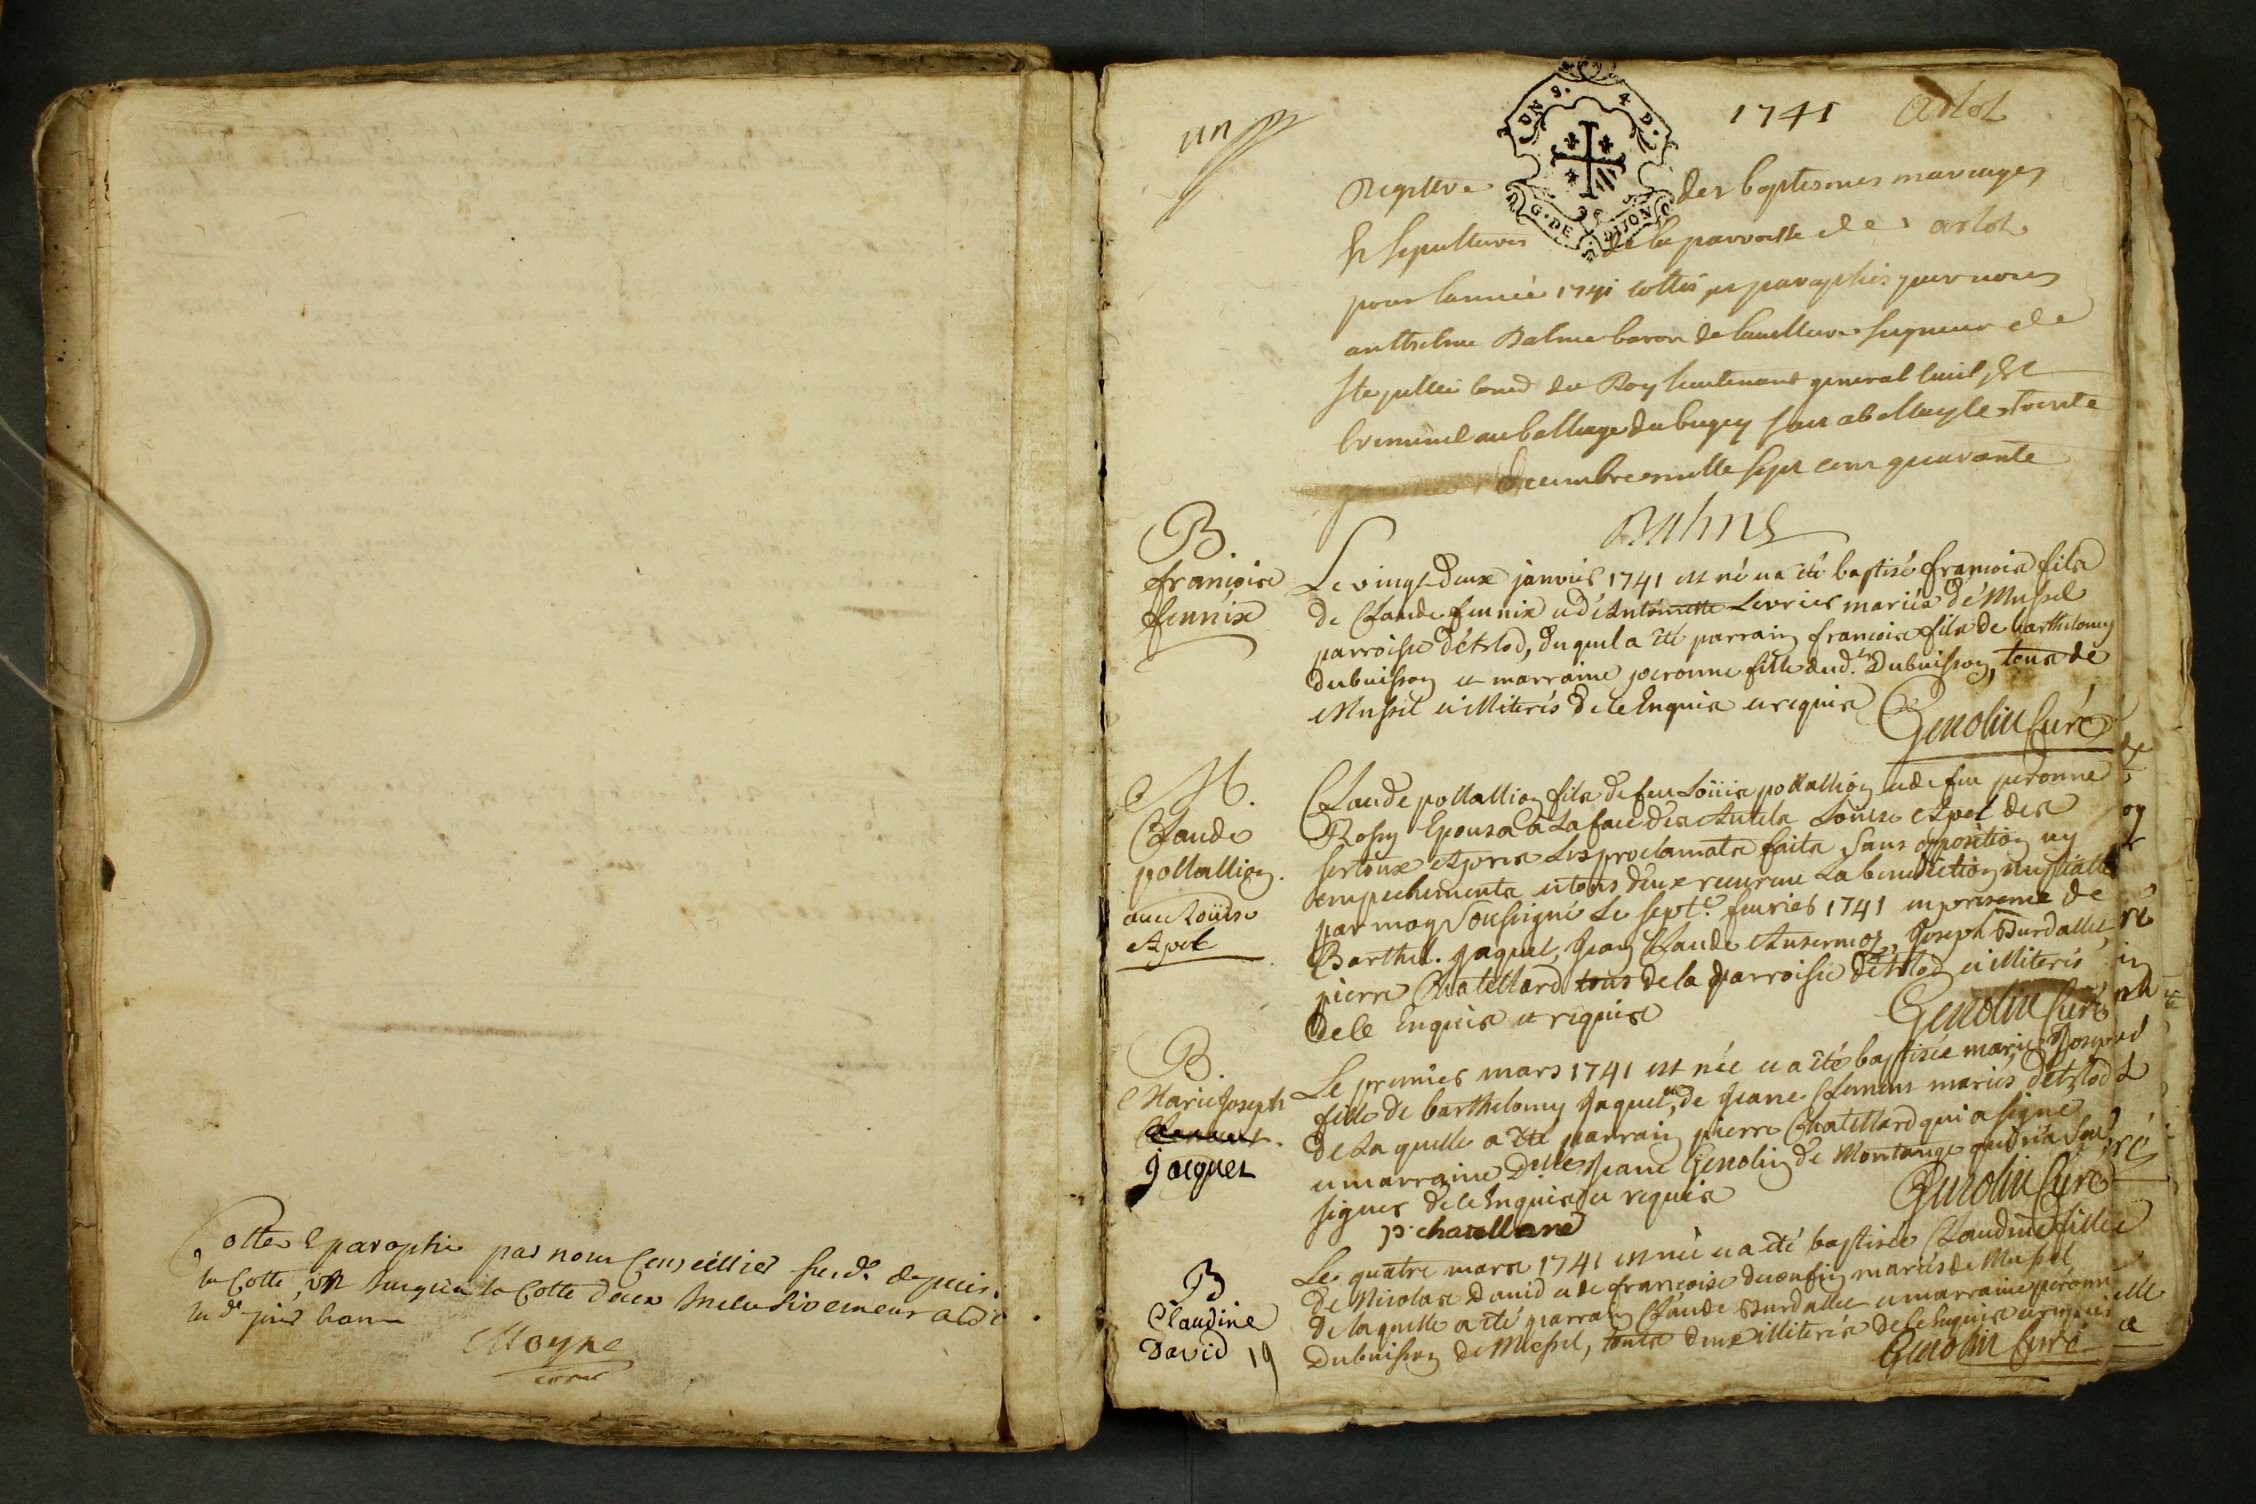 Cotter & paraphé par nous Conseillier susd. depuis
la Cotte un Jusqu'a la Cotte deux Inclusivement
Moyne
un
1741 arlot
DNS. 4 D.
G. DE DIJON
Registre des baptesmes mariages
et sepultures de la parroisse de arlot
pour l'année 1741 cottés et paraphés par nous
anthelme Balme baron de seigneur de
Ste jullie conser du Roy lieutenant general civil et
criminel au balliage du bugey seant a belley le trente
decembre mille sept cent quarante
Balme
B.
francoise
fennix
Le vingt deux janvier 1741 est né et a été baptisé francois fils
de Claude fennix et d'Antoinette Levrier mariés de Mussel
parroisse d'Arlod, duquel a été parrain francois fils de barthelemy
dubuisson et marraine peronne fille dud. Dubuisson, tous de
Mussel illiterés de ce Enquis et requis
Genolin Curé
M.
Claude
pollallion
avec Loüise
Apvel
Claude pollallion fils de feu Loüis pollallion et de feu peronne
Rossy Epousa à la face des Autels Louise Apvel des
sertoux Apres les proclamats faits Sans opposition ny
empechements et tous deux receurent La benediction nuptialle
par moy Soussigné Le sept.e fevrier 1741 en presence de
Barthel. Jaquet, Jean Claude Ansermoz, Joseph Burdallet
pierre Chatellard tous de la parroisse d'Arlod illiterés
de ce Enquis et requis
Genolin Curé
B.
Marie Joseph
Jacquet
Le premier mars 1741 est née et a été baptisée marie Joseph
fille de barthelemy Jaquet, et de Jeane Clemens mariés d'Arlod
de Laquelle a été parrain pierre Chatellard qui a signé
et marraine Dlle Jeane Genolin de Montange qui n'a sçu
signer de ce Enquise et requise
Genolin Curé
p. chatellard
B
Claudine
David 19
Le quatre mars 1741 est née et a été baptisée Claudine fille
de Nicolas David et de francoise ducousin mariés de Mussel
de laquelle a été parrain Claude Burdallet et marraine peronne
Dubuisson de Mussel, touts deux illiterés de ce Enquis et requis
Genolin Curé